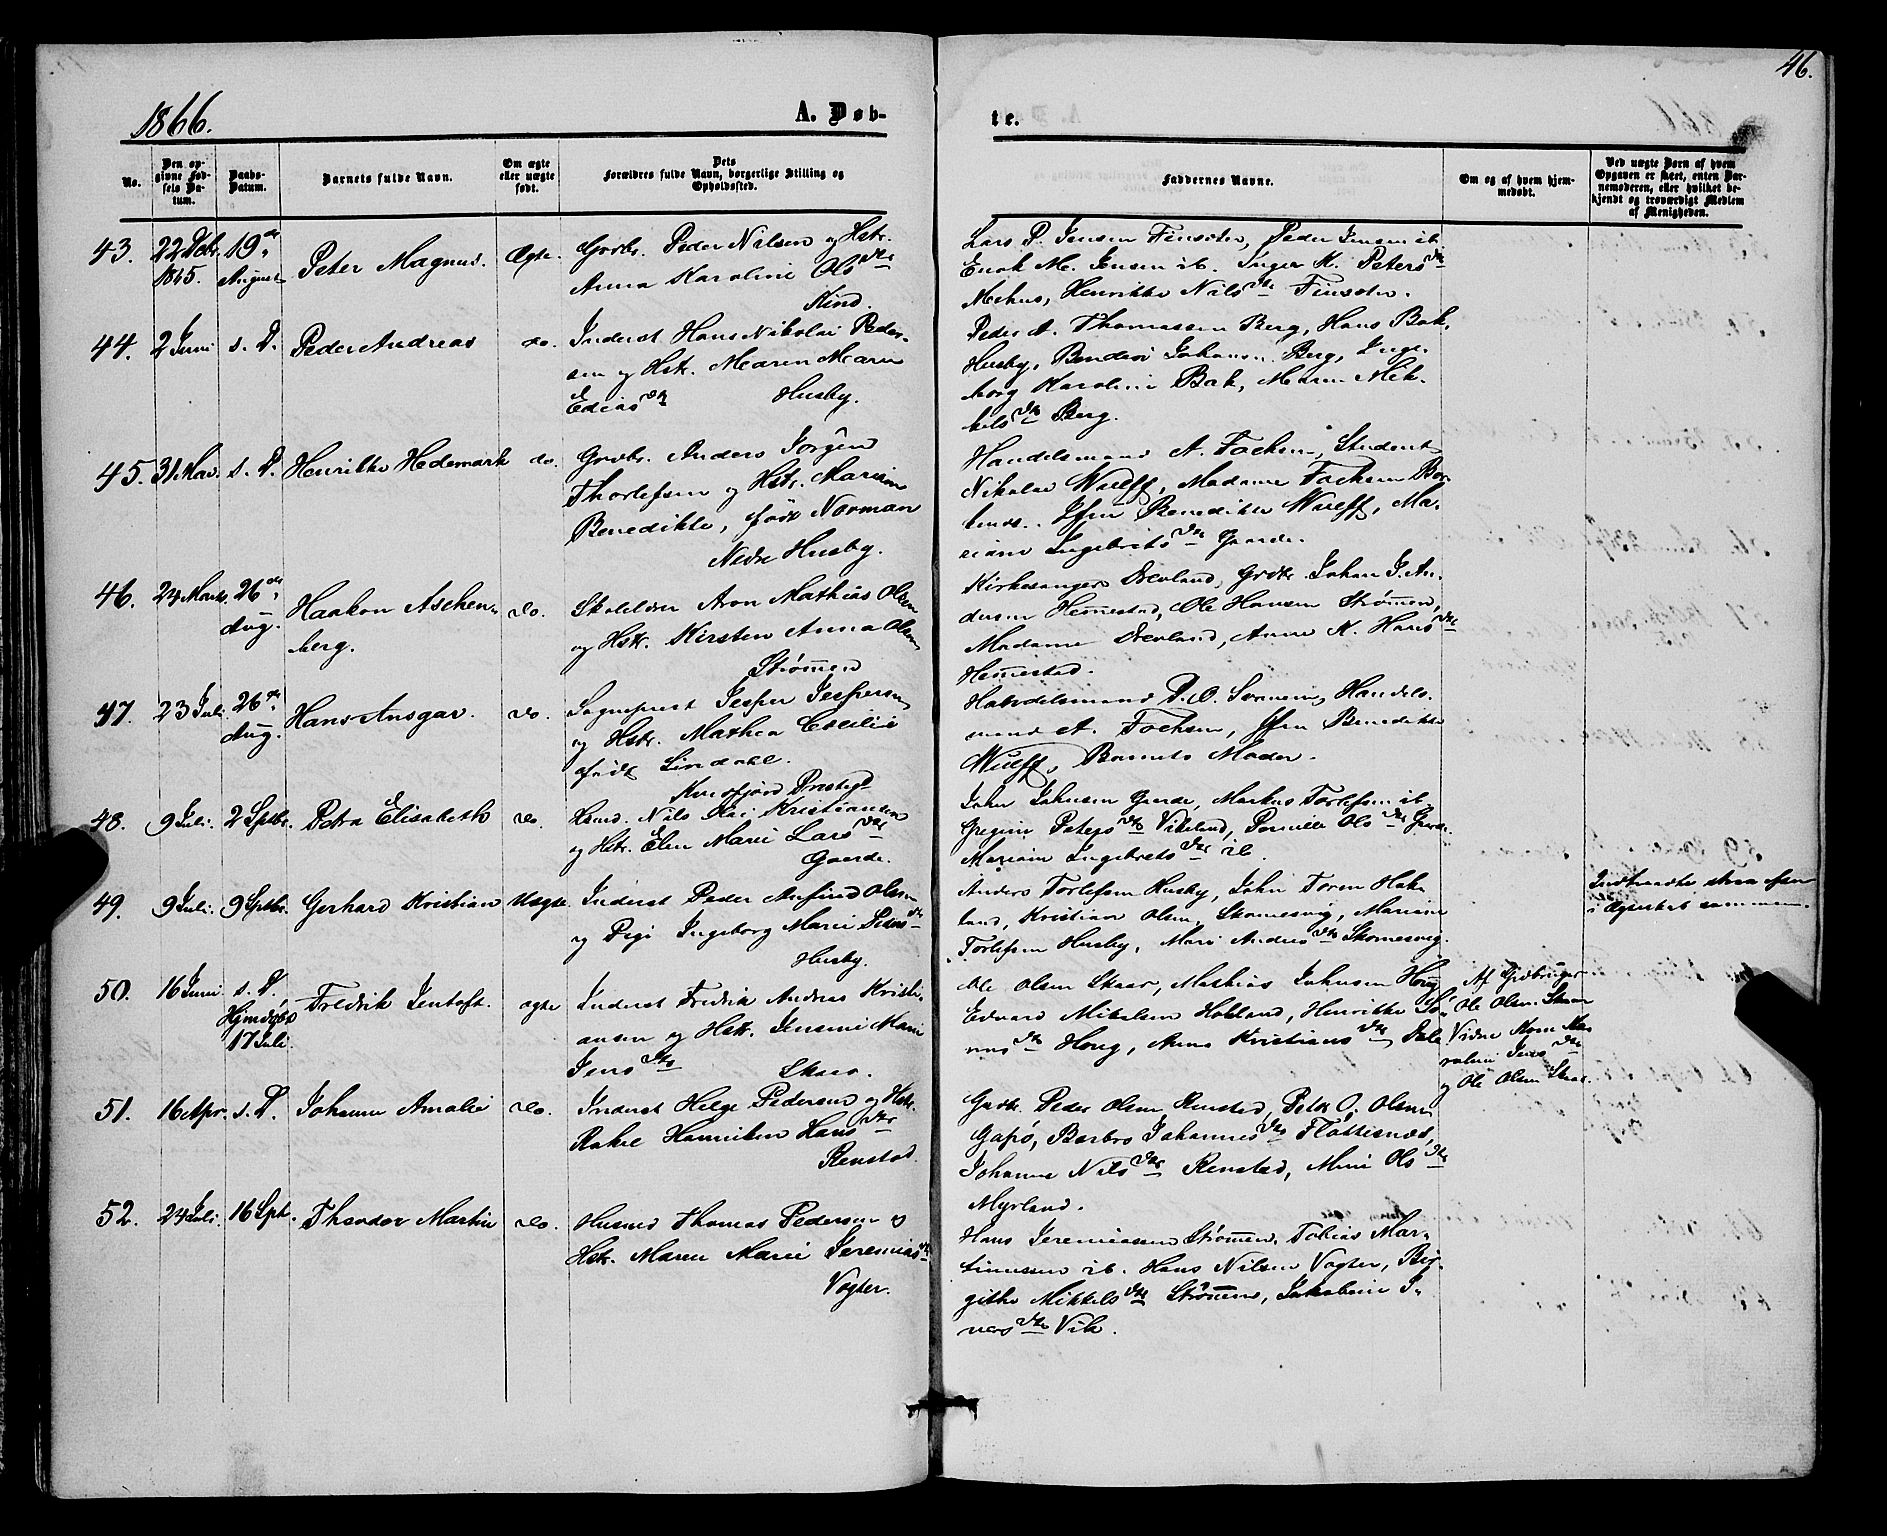 46.
1866.
A. Døb-
te.
No.
Den op-
givne Fød-
sels Da-
tum.
Daabs-
Datum.
Barnets fulde Navn.
Om ægte
eller uægte
født.
Dets
Forældres fulde Navn, borgerlige Stilling og
Opholdssted.
Faddernes Navne.
Om og af hvem hjem-
medøbt.
Ved uægte Børn af hvem
Opgaven er skeet, enten Bar-
nemoderen, eller hvilket be-
kjendt og troværdigt Medlem
af Menigheden.
43. 22 Dcbr. 19de Peter Magnus. Ægte. Grdbr. Peder Nilsen og Hstr.
1865. August Anna Karoline Olsdtr
Kind.
Lars P. Jensen Finsæter, Peder Jensen ib.
Enok M. Jensen ib. Inger K. Petersdtr
Mehus, Henrikke Nilsdtr Finsæter.
44. 2 Juni s. D. Peder Andreas do. Inderst Hans Nikolai Peder-
sen og Hstr. Maren Marie
Ediasdtr Husby.
Peder A. Thomassen Berg, Hans Bak,
Husby, Johansn. Berg, Inge-
borg Karoline Bak, Maren Mik-
kelsdtr Berg.
45. 31 Mar. s. D. Henrikke Hedemark do. Grdbr. Anders Jørgen
Thorlefsen og Hstr. Marian
Benedikte, født Norman
Nedre Husby.
Handelsmand A. Fochsen, Student
Nikolai Wulff, Madame Fochsen
Jfru Benedikte Wulff, Ma-
riane Ingebrctsdtr Gaarde.
46. 24 Marts 26de Haakon Aschen- do. Skolelærer Aron Mathias Olsen
Aug. berg. og Hstr. Kirsten Anna Olsen
Strømen
Kirkesanger Drevland, Grdbr. Johan J. An-
dersen Hemestad, Ole Hansen Strømen,
Madame Drevland, Anne K. Hansdtr
Hemestad.
47. 23 Juli 26de Hans Ansgar. do. Sogneprest Jesper Jespersen
Aug. og Hstr. Mathea Cecilie
født Lindahl.
Kvæfjord Prestegd
Handelsmand D. O. Handels-
mand A. Fochsen, Jfru Benedikte
Wulff, Barnets Moder.
48. 9 Juli. 2 Sptbr. Petra Elisabeth do. Hsmd. Nils Kai Kristiansen
og Hstr. Elen Marie Larsdtr
Gaarde.
John Johnsen Gaarde, Markus Torlefsen ib.
Gregine Petersdtr Vikeland, Pernille Olsdtr Gaarde
Mariane Ingebretsdtr ib.
49. 9 Juli. 9 Sptbr. Gerhard Kristian Uægte. Inderst Peder Anfind Olsen
og Pige Ingeborg Marie Pedersdtr
Husby.
Anders Torlefsen Husby, John Toren Hok-
land, Kristian Olsen, Skomesvig, Mariane
Torlefsen Husby, Mari Andersdtr Skomesvig.
Indtraadte strax efter
i Ægteskab sammen.
50. 16 Juni s. D. Fredrik Jentoft. ægte Inderst Fredrik Andreas Kristi-
Hjmdøbt ansen og Hstr. Jensine Marie
17 Juli. Jensdtr Skaar.
Ole Olsen Skaar, Mathias Johnsen Houg
Edvard Mikalsen Hokland, Henrikke Sø-
rensdtr Houg, Anne Kristiansdtr Dale
Af Grdbruger
Ole Olsen Skaar
Vidne Kone Ka-
roline Jensdtr
og Ole Olsen Skaar.
51. 16 Apr. s. D. Johanne Amalie do. Inderst Helge Pedersen og Hstr.
Rakel Henriken Hansdtr
Renstad.
Grdbr. Peder Olsen Renstad, Peter O. Olsen
Gapø, Barbro Johannesdtr Flottesnæs,
Johanne Nilsdtr Renstad, Mine Olsdtr
Myrland.
52. 24 Juli. 16 Spt. Theodor Martin do. Husmd Thomas Pedersen og
Hstr. Maren Marie Jeremiasdtr
Vogter.
Hans Jeremiassen Strømen, Tobias Mar-
tinussen ib. Hans Nilsen Vogter, Bir-
githe Mikkelsdtr Strømen, Jakobine I-
versdtr Vik.